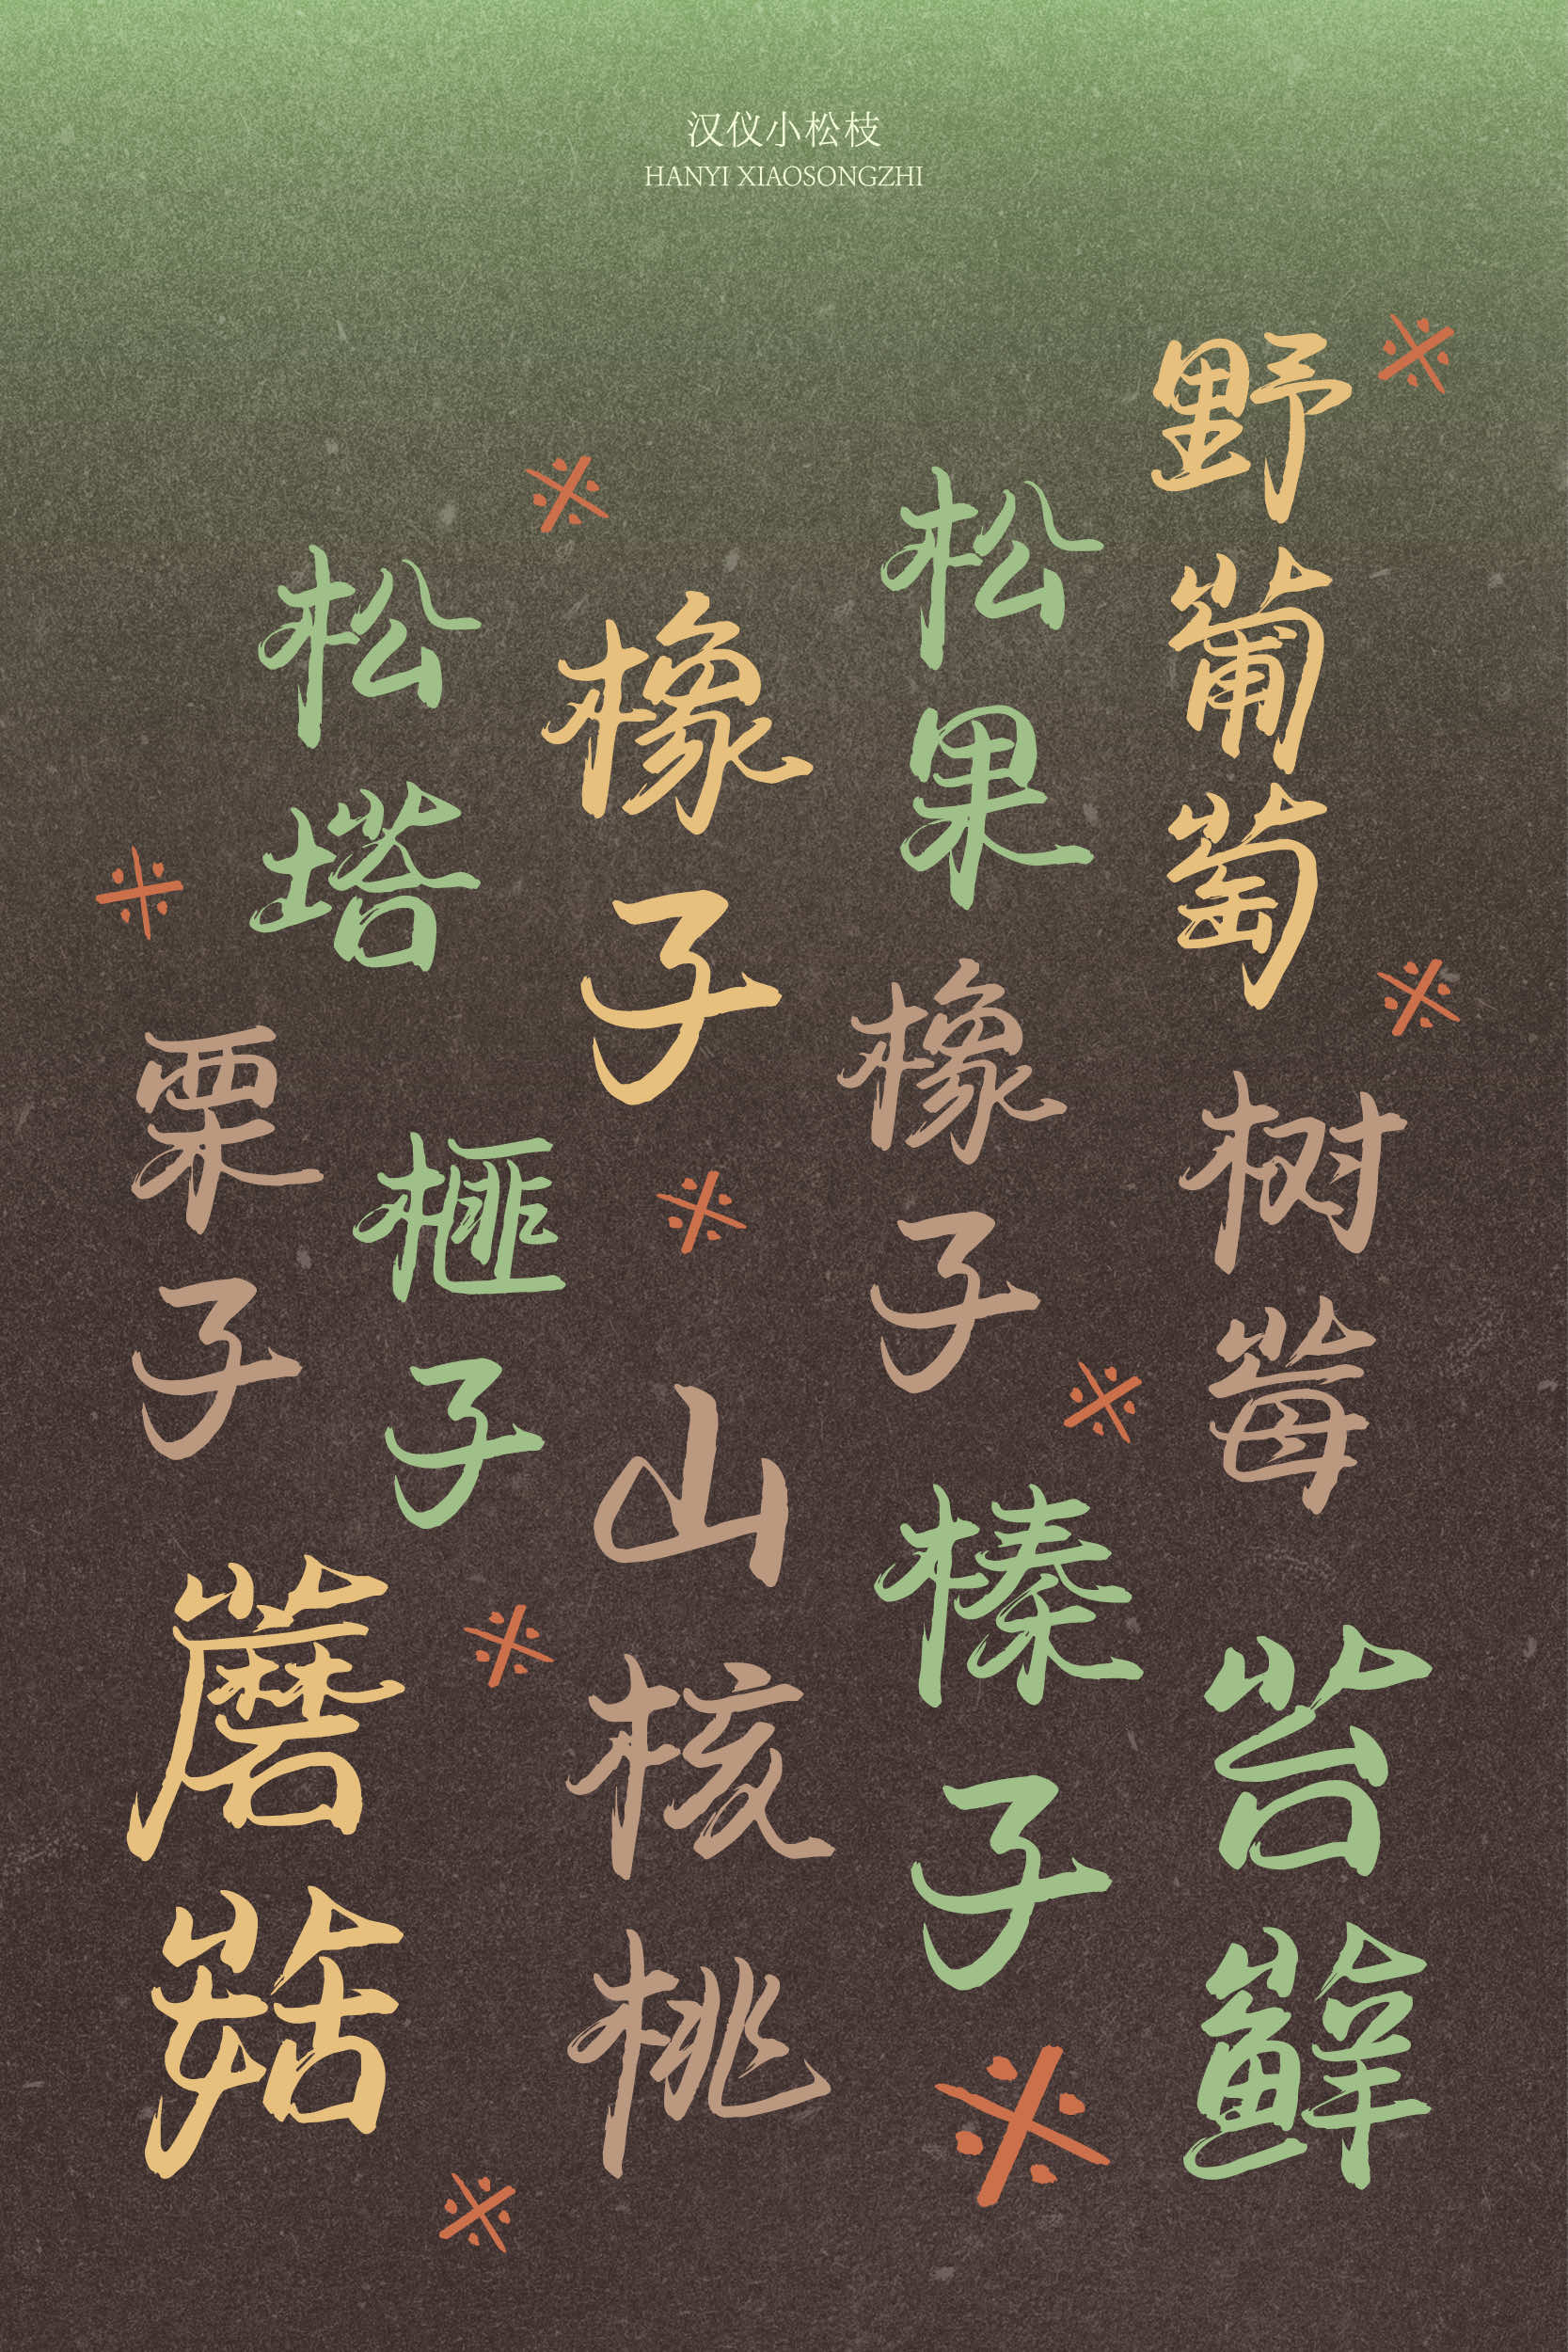 汉仪小松枝
HANYI XIAOSONGZHI
野葡萄
树莓
苔藓
松果
橡子
榛子
橡子
山核桃
松塔
榧子
栗子
蘑菇